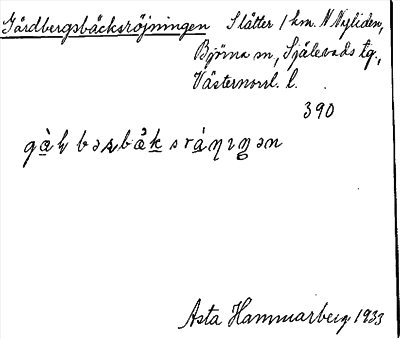 Gårdbergsbäcksröjningen Slåtter 1 km. N Nyliden,
Björna sn, Själevads tg.,
Västernorrl. l.
390
Asta Hammarberg 1933